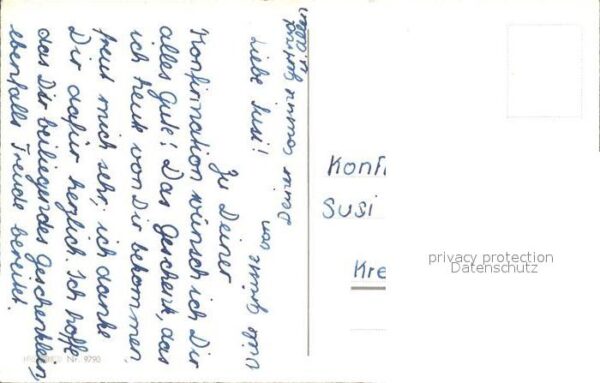 Liebe Susi!
Zu Deiner
Konfirmation wünsch ich Dir
alles Gute! Das Geschenk, das
ich heute von Dir bekommen,
freut mich sehr, ich danke
Dir dafür herzlich. Ich hoffe
das Dir beiliegendes Geschenklein,
ebenfalls Freude bereitet.
Deine
Konfi
Susi
Kre
privacy protection
Datenschutz
Nr. 9790